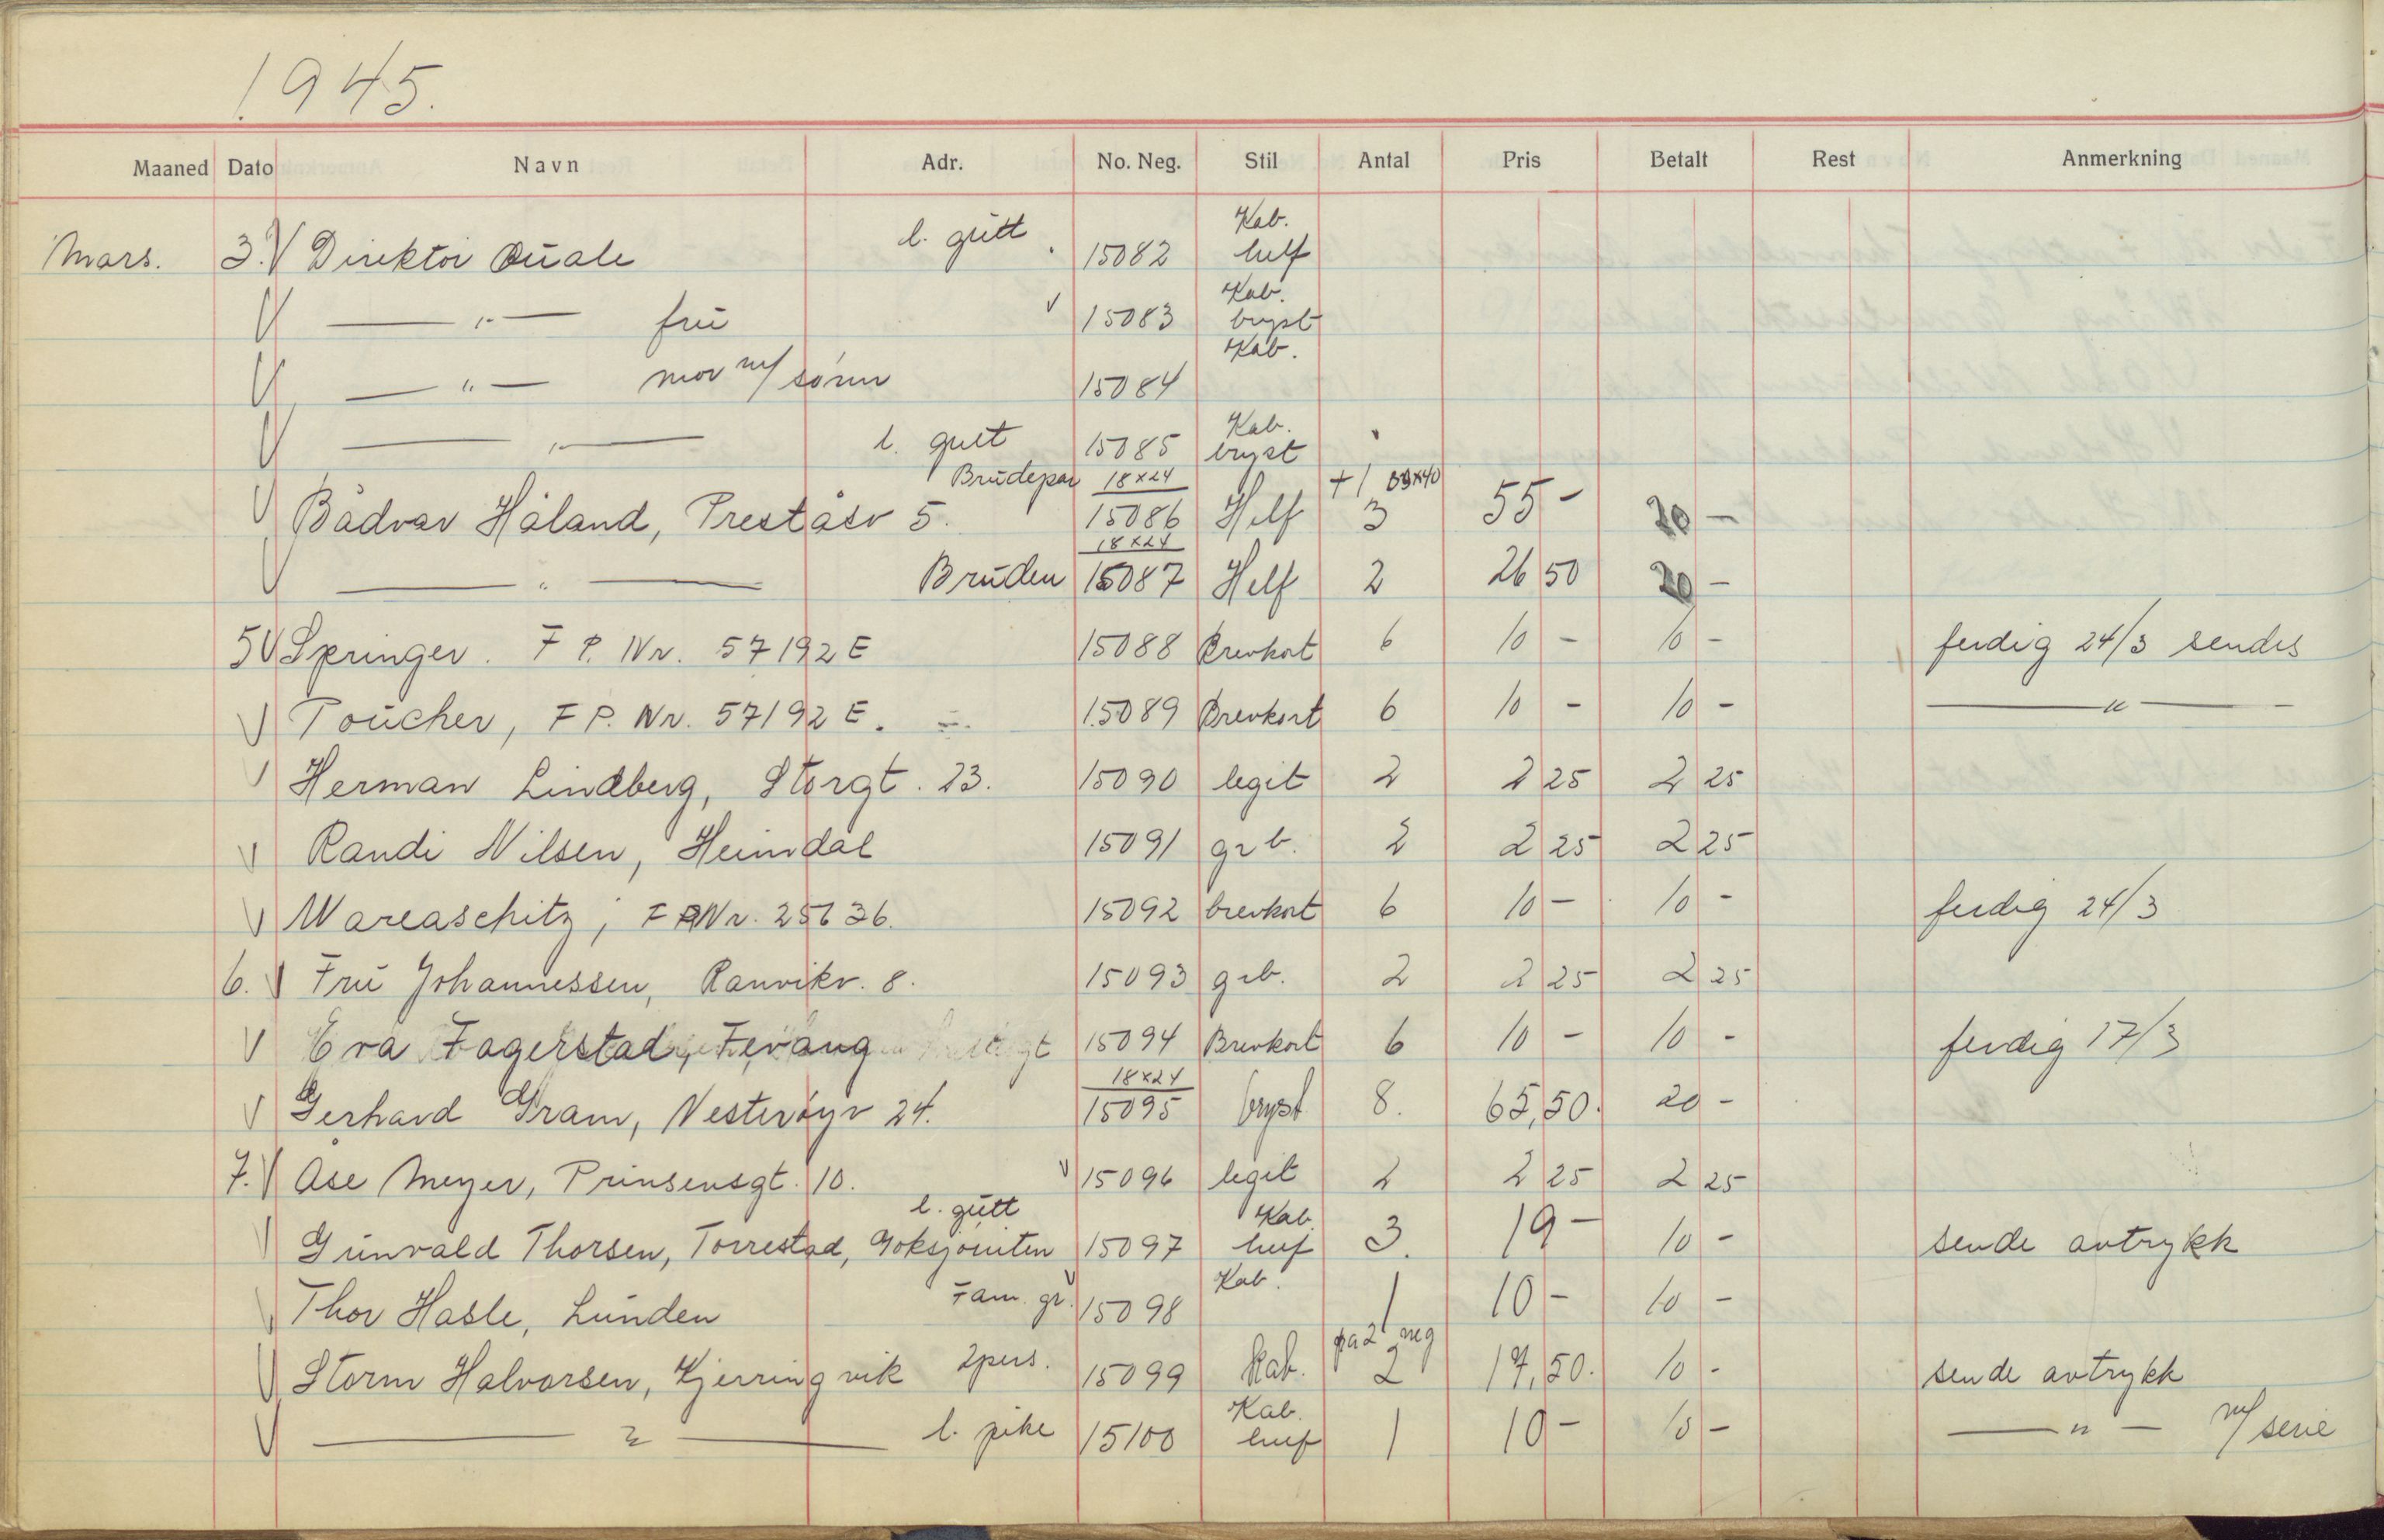 1945.
Maaned Dato Navn Adr. No. Neg. Stil Antal Pris Betalt Rest Anmerkning
Mars. 3. V Direktør Quale l. gutt 15082 Kab. helf
V —"— fru V 15083 Kab. bryst
V —"— mor m/ sønn 15084 Kab.
V —"— l. gutt 15085 Kab. bryst
V Bådvar Håland, Preståsv 5. Brudepar 18x24 15086 Helf +1 3 55 - 20 -
V —"— Bruden 18x24 15087 Helf 2 26 50 20 -
5 V Springer. F P. Nr. 57192 E 15088 Brevkort 6 10 - 10 - ferdig 24/3 sendes
V Toucher, F P. Nr. 57192 E. 15089 Brevkort 6 10 - 10 - —"—
V Herman Lindberg, Storgt. 23. 15090 legit 2 2 25 2 25
V Randi Nilsen, Heimdal 15091 grb. 2 2 25 2 25
V Wareaschitz, F P Nr. 25636. 15092 brevkort 6 10 - 10 - ferdig 24/3
6. V Fru Johannessen, Ranvikv. 8. 15093 grb. 2 2 25 2 25
V Eva Fagerstad, Fevang 15094 Brevkort 6 10 - 10 - ferdig 17/3
V Gerhard Gram, Nesterøyv 24. 18x24 15095 bryst 8. 65,50. 20 -
7. V Åse Meyer, Prinsensgt. 10. V 15096 legit 2 2 25 2 25
V Gunvald Thorsen, Torrestad, Goksjøruten l. gutt 15097 Kab. helf 3. 19 - 10 - sende avtrykk
V Thor Hasle, Lunden Fam. gr. V 15098 Kab. 1 10 - 10 -
V Storm Halvorsen, Kjerringvik 2pers. 15099 kab. på 2 neg 2 17,50. 10 - sende avtrykk
V —"— l. pike 15100 Kab. helf 1 10 - 10 - —"— m/ serie